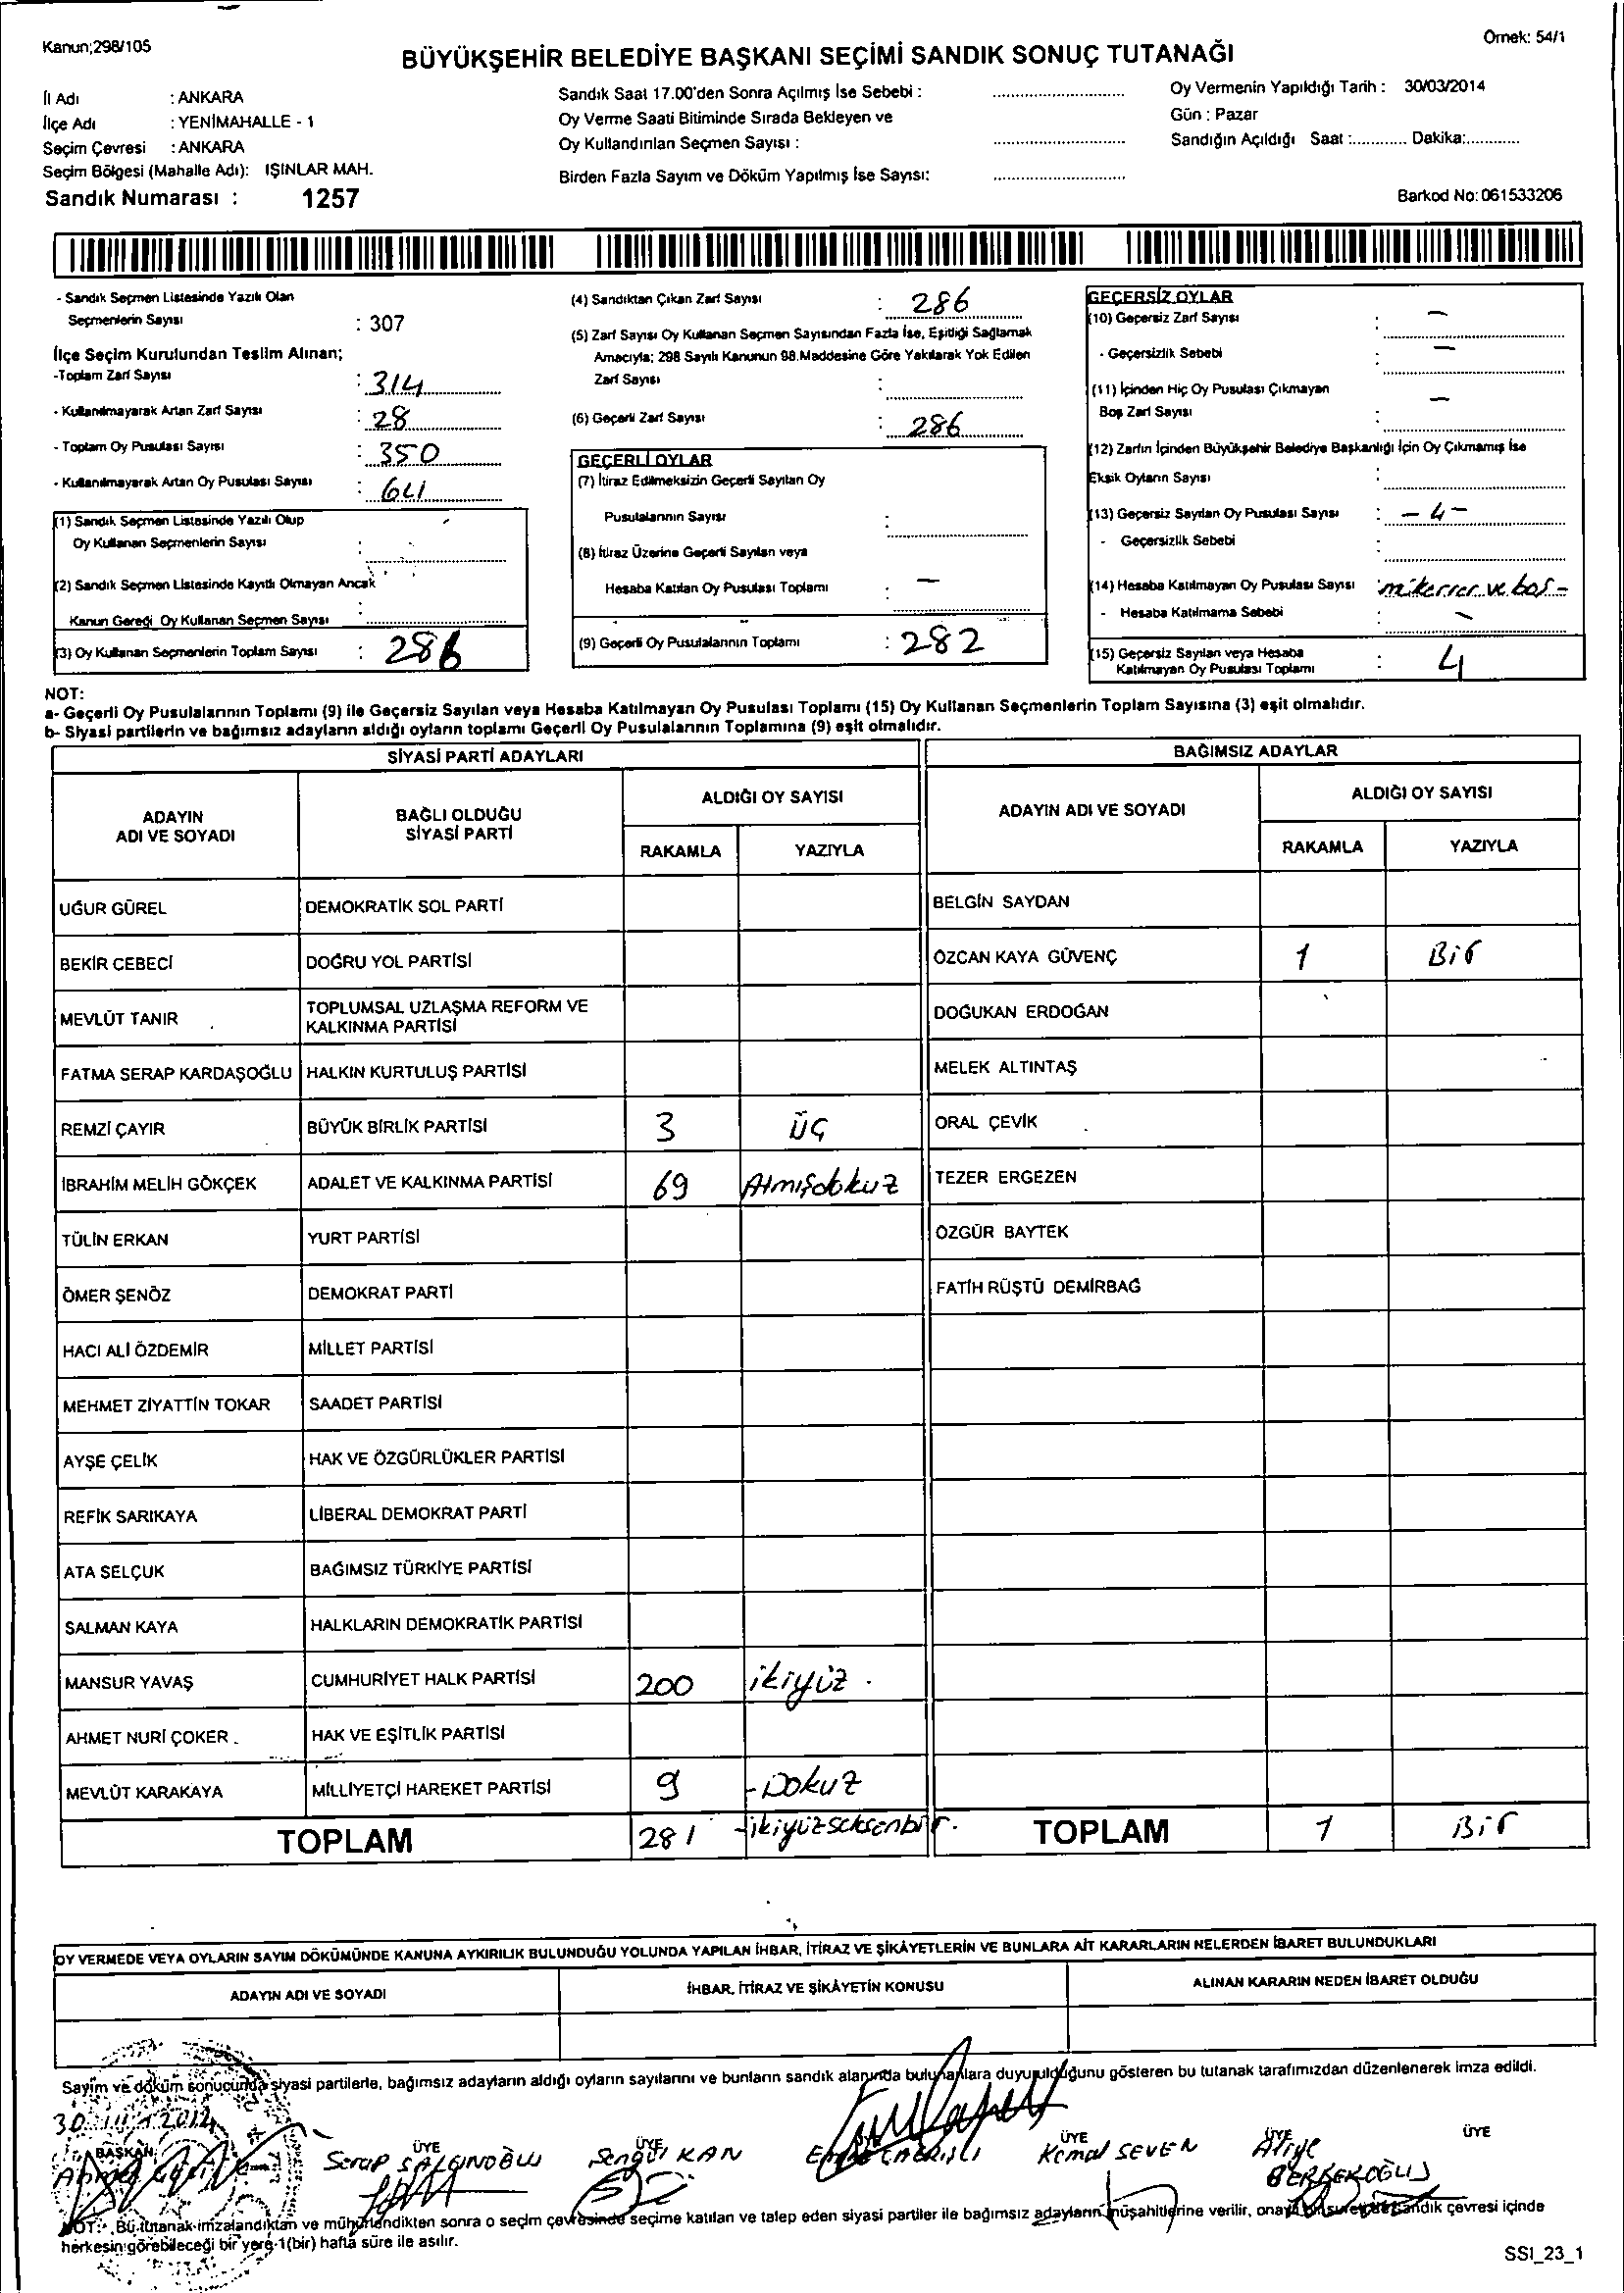 Kanun;298/105
Örnek: 54/1
BÜYÜKŞEHİR BELEDİYE BAŞKANI SEÇİMİ SANDIK SONUÇ TUTANAĞI
İl Adı : ANKARA
İlçe Adı : YENİMAHALLE - 1
Seçim Çevresi : ANKARA
Seçim Bölgesi (Mahalle Adı): IŞINLAR MAH.
Sandık Numarası : 1257
Sandık Saat 17.00'den Sonra Açılmış İse Sebebi : ............
Oy Verme Saati Bitiminde Sırada Bekleyen ve
Oy Kullandırılan Seçmen Sayısı : ............
Birden Fazla Sayım ve Döküm Yapılmış İse Sayısı: ............
Oy Vermenin Yapıldığı Tarih : 30/03/2014
Gün : Pazar
Sandığın Açıldığı Saat :............ Dakika:............
Barkod No: 061533206
- Sandık Seçmen Listesinde Yazılı Olan
Seçmenlerin Sayısı : 307
İlçe Seçim Kurulundan Teslim Alınan;
-Toplam Zarf Sayısı : 314
- Kullanılmayarak Artan Zarf Sayısı : 28
- Toplam Oy Pusulası Sayısı : 350
- Kullanılmayarak Artan Oy Pusulası Sayısı : 64
(1) Sandık Seçmen Listesinde Yazılı Olup
Oy Kullanan Seçmenlerin Sayısı :
(2) Sandık Seçmen Listesinde Kayıtlı Olmayan Ancak
Kanun Gereği Oy Kullanan Seçmen Sayısı :
(3) Oy Kullanan Seçmenlerin Toplam Sayısı : 286
(4) Sandıktan Çıkan Zarf Sayısı : 286
(5) Zarf Sayısı Oy Kullanan Seçmen Sayısından Fazla İse, Eşitliği Sağlamak
Amacıyla; 298 Sayılı Kanunun 98.Maddesine Göre Yakılarak Yok Edilen
Zarf Sayısı :
(6) Geçerli Zarf Sayısı : 286
GEÇERLİ OYLAR
(7) İtiraz Edilmeksizin Geçerli Sayılan Oy
Pusulalarının Sayısı :
(8) İtiraz Üzerine Geçerli Sayılan veya
Hesaba Katılan Oy Pusulası Toplamı : —
(9) Geçerli Oy Pusulalarının Toplamı : 282
GEÇERSİZ OYLAR
(10) Geçersiz Zarf Sayısı : —
- Geçersizlik Sebebi : —
(11) İçinden Hiç Oy Pusulası Çıkmayan
Boş Zarf Sayısı : —
(12) Zarfın İçinden Büyükşehir Belediye Başkanlığı İçin Oy Çıkmamış İse
Eksik Oyların Sayısı :
(13) Geçersiz Sayılan Oy Pusulası Sayısı : - 4 -
- Geçersizlik Sebebi :
(14) Hesaba Katılmayan Oy Pusulası Sayısı : mükerrer ve boş -
- Hesaba Katılmama Sebebi : —
(15) Geçersiz Sayılan veya Hesaba
Katılmayan Oy Pusulası Toplamı : 4
NOT:
a- Geçerli Oy Pusulalarının Toplamı (9) ile Geçersiz Sayılan veya Hesaba Katılmayan Oy Pusulası Toplamı (15) Oy Kullanan Seçmenlerin Toplam Sayısına (3) eşit olmalıdır.
b- Siyasi partilerin ve bağımsız adayların aldığı oyların toplamı Geçerli Oy Pusulalarının Toplamına (9) eşit olmalıdır.
SİYASİ PARTİ ADAYLARI
BAĞIMSIZ ADAYLAR
ADAYIN ADI VE SOYADI
BAĞLI OLDUĞU SİYASİ PARTİ
ALDIĞI OY SAYISI
RAKAMLA YAZIYLA
ADAYIN ADI VE SOYADI
ALDIĞI OY SAYISI
RAKAMLA YAZIYLA
UĞUR GÜREL DEMOKRATİK SOL PARTİ BELGİN SAYDAN
BEKİR CEBECİ DOĞRU YOL PARTİSİ ÖZCAN KAYA GÜVENÇ 1 Bir
MEVLÜT TANIR TOPLUMSAL UZLAŞMA REFORM VE KALKINMA PARTİSİ DOĞUKAN ERDOĞAN
FATMA SERAP KARDAŞOĞLU HALKIN KURTULUŞ PARTİSİ MELEK ALTINTAŞ
REMZİ ÇAYIR BÜYÜK BİRLİK PARTİSİ 3 ÜÇ ORAL ÇEVİK
İBRAHİM MELİH GÖKÇEK ADALET VE KALKINMA PARTİSİ 69 Atmışdokuz TEZER ERGEZEN
TÜLİN ERKAN YURT PARTİSİ ÖZGÜR BAYTEK
ÖMER ŞENÖZ DEMOKRAT PARTİ FATİH RÜŞTÜ DEMİRBAĞ
HACI ALİ ÖZDEMİR MİLLET PARTİSİ
MEHMET ZİYATTİN TOKAR SAADET PARTİSİ
AYŞE ÇELİK HAK VE ÖZGÜRLÜKLER PARTİSİ
REFİK SARIKAYA LİBERAL DEMOKRAT PARTİ
ATA SELÇUK BAĞIMSIZ TÜRKİYE PARTİSİ
SALMAN KAYA HALKLARIN DEMOKRATİK PARTİSİ
MANSUR YAVAŞ CUMHURİYET HALK PARTİSİ 200 ikiyüz.
AHMET NURİ ÇOKER HAK VE EŞİTLİK PARTİSİ
MEVLÜT KARAKAYA MİLLİYETÇİ HAREKET PARTİSİ 9 -Dokuz
TOPLAM 281 -ikiyüzseksenbir. TOPLAM 1 Bir
OY VERMEDE VEYA OYLARIN SAYIM DÖKÜMÜNDE KANUNA AYKIRILIK BULUNDUĞU YOLUNDA YAPILAN İHBAR, İTİRAZ VE ŞİKÂYETLERİN VE BUNLARA AİT KARARLARIN NELERDEN İBARET BULUNDUKLARI
ADAYIN ADI VE SOYADI İHBAR, İTİRAZ VE ŞİKÂYETİN KONUSU ALINAN KARARIN NEDEN İBARET OLDUĞU
Sayım ve döküm sonucunda siyasi partilerle, bağımsız adayların aldığı oyların sayılarını ve bunların sandık alanında bulunanlara duyurulduğunu gösteren bu tutanak tarafımızdan düzenlenerek imza edildi.
30 / 2014
BAŞKAN ÜYE ÜYE ÜYE ÜYE ÜYE
Ahmet Serap SALGINOĞLU Sengül KAN Kemal SEVEN Atiye
NOT: Bu tutanak imzalandıktan ve mühürlendikten sonra o seçim çevresinde seçime katılan ve talep eden siyasi partiler ile bağımsız adayların müşahitlerine verilir, onaylı bir sureti de sandık çevresi içinde
herkesin görebileceği bir yere 1(bir) hafta süre ile asılır.
SSI_23_1